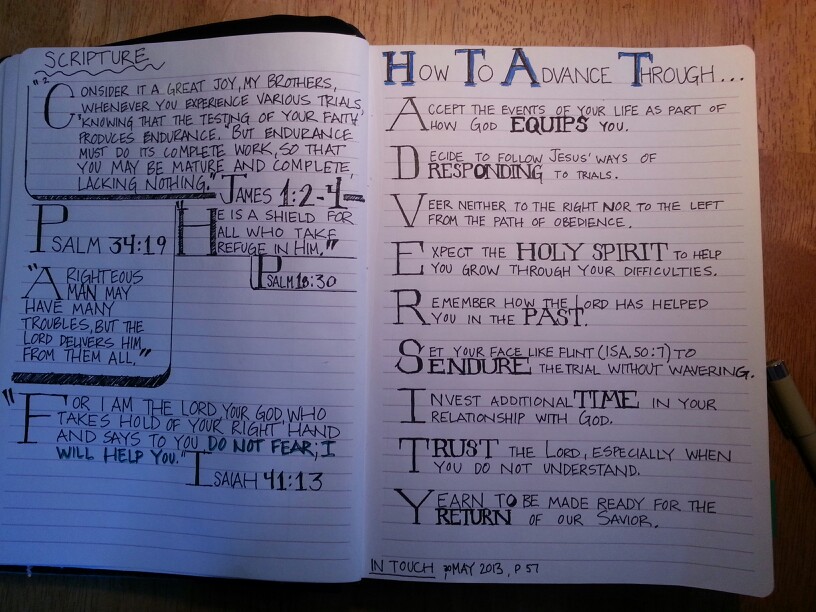 SCRIPTURE
"2 CONSIDER IT A GREAT JOY, MY BROTHERS,
WHENEVER YOU EXPERIENCE VARIOUS TRIALS,
3 KNOWING THAT THE TESTING OF YOUR FAITH
PRODUCES ENDURANCE. 4 BUT ENDURANCE
MUST DO ITS COMPLETE WORK, SO THAT
YOU MAY BE MATURE AND COMPLETE,
LACKING NOTHING."
JAMES 1:2-4
PSALM 34:19
"A RIGHTEOUS
MAN MAY
HAVE MANY
TROUBLES, BUT THE
LORD DELIVERS HIM
FROM THEM ALL."
"HE IS A SHIELD FOR
ALL WHO TAKE
REFUGE IN HIM."
PSALM 18:30
"FOR I AM THE LORD YOUR GOD, WHO
TAKES HOLD OF YOUR RIGHT HAND
AND SAYS TO YOU, DO NOT FEAR; I
WILL HELP YOU."
ISAIAH 41:13
HOW TO ADVANCE THROUGH...
ACCEPT THE EVENTS OF YOUR LIFE AS PART OF
HOW GOD EQUIPS YOU.
DECIDE TO FOLLOW JESUS' WAYS OF
RESPONDING TO TRIALS.
VEER NEITHER TO THE RIGHT NOR TO THE LEFT
FROM THE PATH OF OBEDIENCE.
EXPECT THE HOLY SPIRIT TO HELP
YOU GROW THROUGH YOUR DIFFICULTIES.
REMEMBER HOW THE LORD HAS HELPED
YOU IN THE PAST.
SET YOUR FACE LIKE FLINT (ISA. 50:7) TO
ENDURE THE TRIAL WITHOUT WAVERING.
INVEST ADDITIONAL TIME IN YOUR
RELATIONSHIP WITH GOD.
TRUST THE LORD, ESPECIALLY WHEN
YOU DO NOT UNDERSTAND.
YEARN TO BE MADE READY FOR THE
RETURN OF OUR SAVIOR.
IN TOUCH 30 MAY 2013, P 57